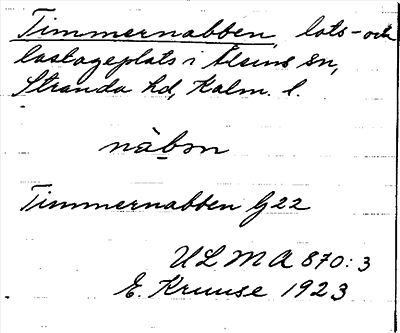 Timmernabben, lots- och
lastageplats i Ålems sn,
Stranda hd, Kalm. l.
nàbm
Timmernabben G22
ULMA 870:3
E. Kruuse 1923